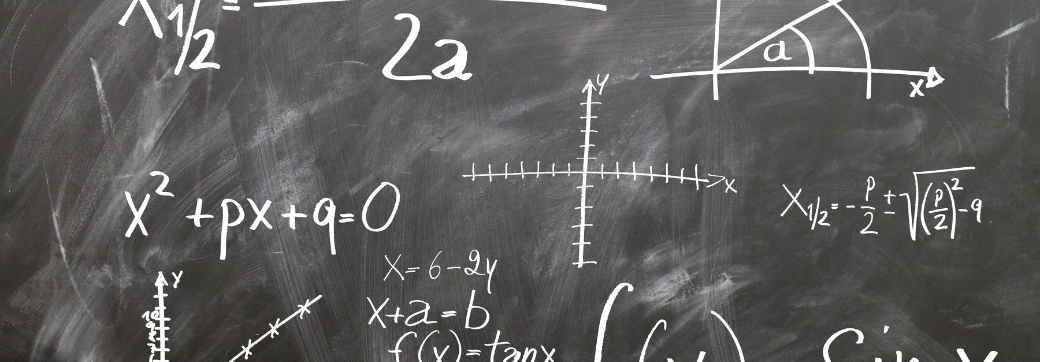 X1/2 =
2a
a
x
y
x
x² + px + q = 0
X1/2 = -p/2 ± √((p/2)² - q)
x = 6 - 2y
y
x + a = b
f(x) = tanx
∫
Sin x